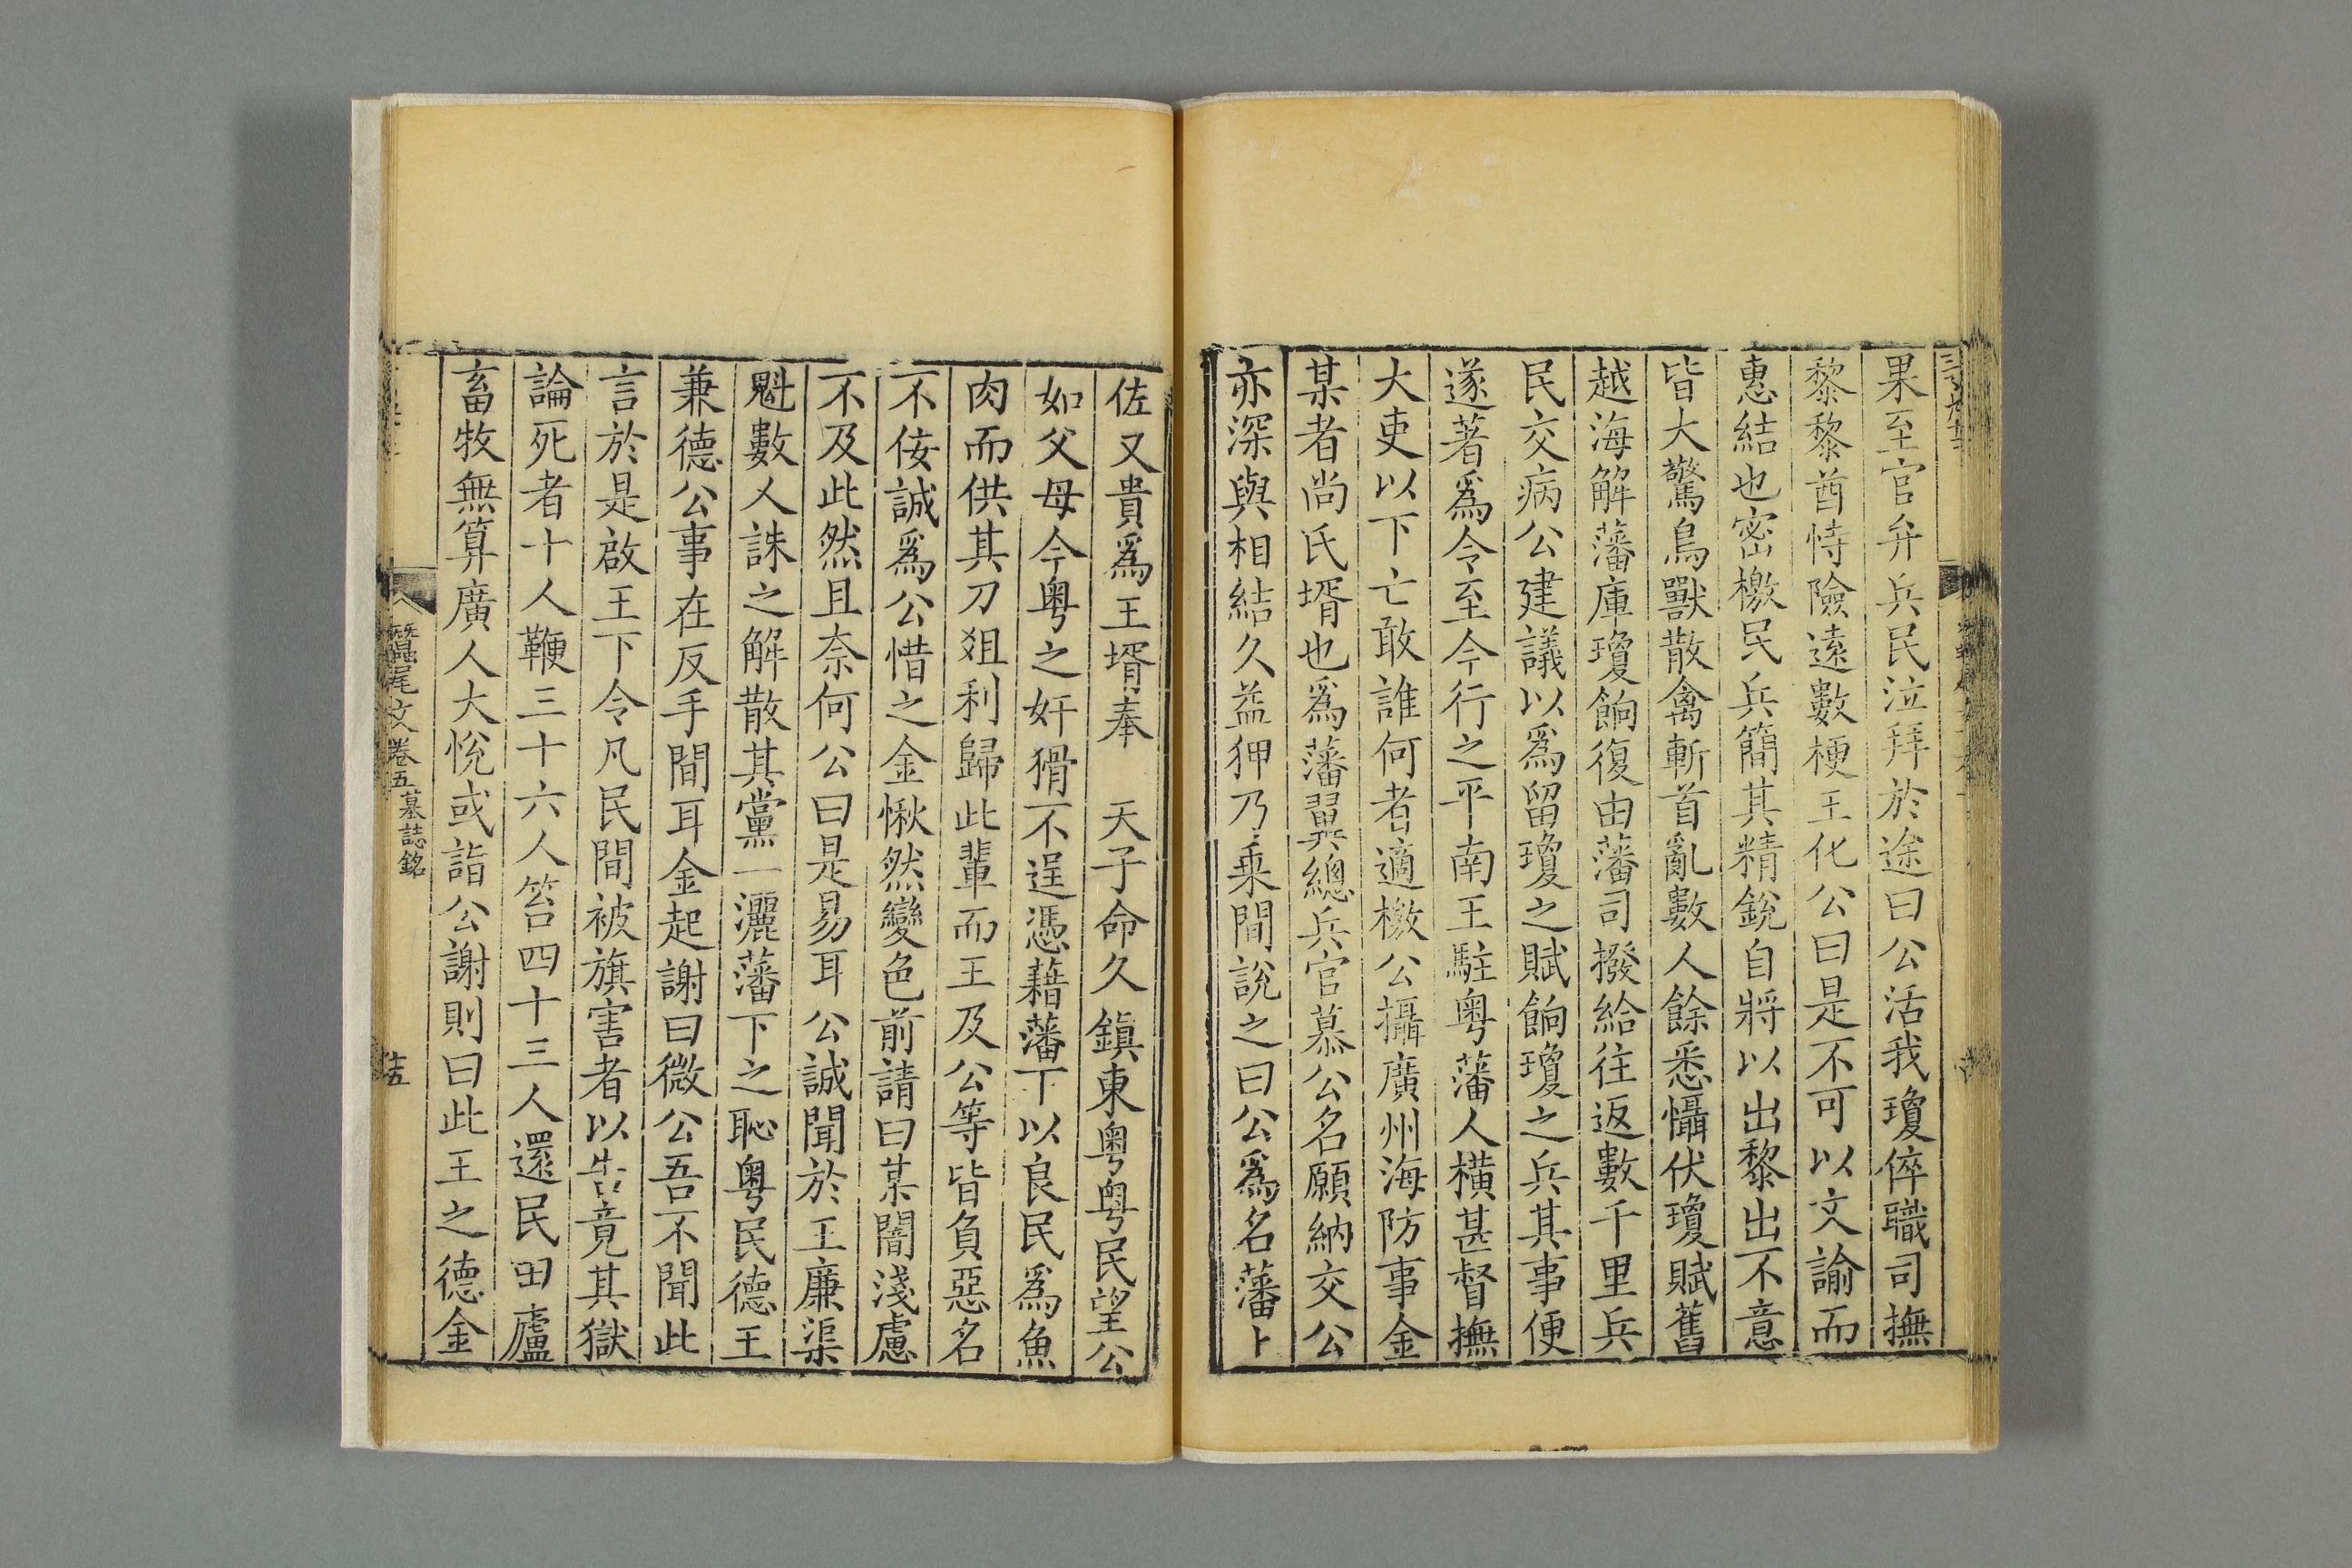 果至官弁兵民泣拜於途曰公活我瓊倅職司撫
黎黎酋恃險遠數梗王化公曰是不可以文諭而
惠結也密檄民兵簡其精銳自將以出黎出不意
皆大驚鳥獸散禽斬首亂數人餘悉懾伏瓊賦舊
越海解藩庫瓊餉復由藩司撥給往返數千里兵
民交病公建議以爲留瓊之賦餉瓊之兵其事便
遂著爲令至今行之平南王駐粵藩人橫甚督撫
大吏以下亡敢誰何者適檄公攝廣州海防事金
某者尚氏壻也爲藩翼總兵官慕公名願納交公
亦深與相結久益狎乃乘間說之曰公爲名藩上
佐又貴爲王壻奉 天子命久鎮東粵粵民望公
如父母今粵之奸猾不逞憑藉藩下以良民爲魚
肉而供其刀俎利歸此輩而王及公等皆負惡名
不佞誠爲公惜之金愀然變色前請曰某闇淺慮
不及此然且奈何公曰是易耳公誠聞於王廉渠
魁數人誅之解散其黨一灑藩下之恥粵民德王
兼德公事在反手間耳金起謝曰微公吾不聞此
言於是啟王下令凡民間被旗害者以告竟其獄
論死者十人鞭三十六人笞四十三人還民田廬
畜牧無算廣人大悅或詣公謝則曰此王之德金
蠶尾文卷五 墓誌銘
十五